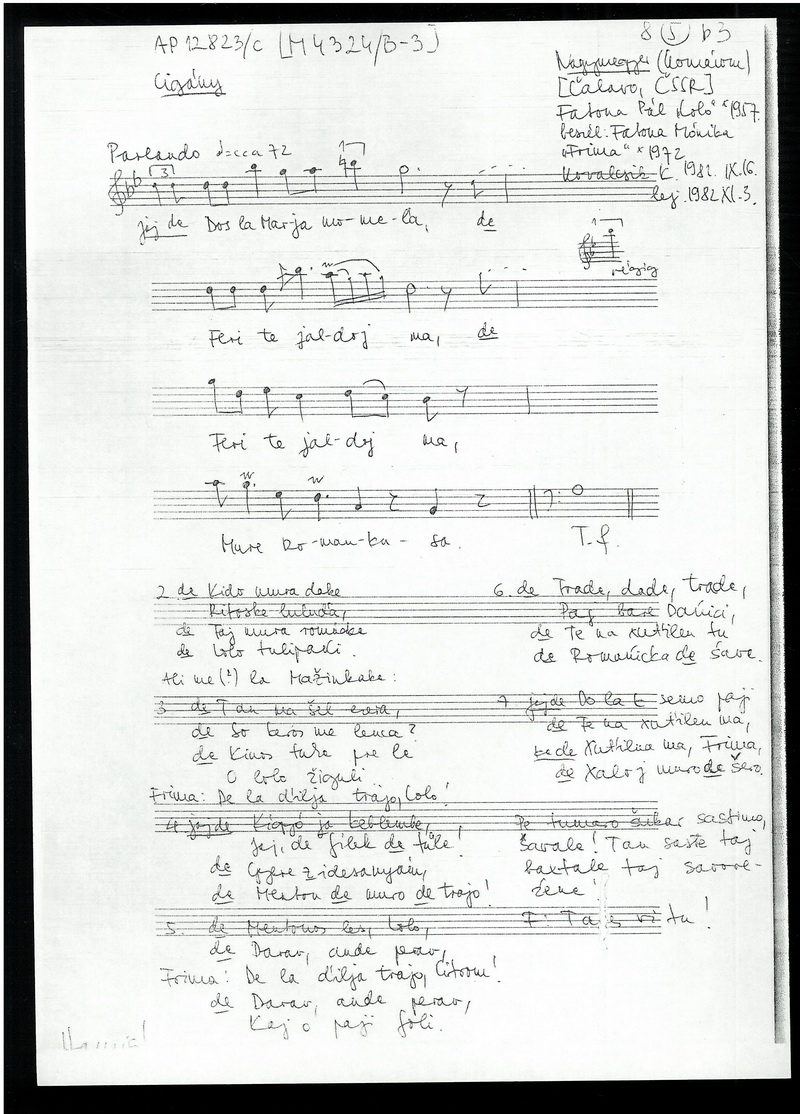 AP 12823/c [M 4324/B-3]
8 (5) b3
Cigány
Nagymegyer (Komárom)
[Čalovo, ČSSR]
Fatona Pál "Kolo" *1957.
beszél: Fatona Mónika
"Frima" * 1972
Kovalcsik K. 1982. IX.16.
lej. 1982 XI.3.
Parlando ♩=cca 72
3
jej de Dos la Marja mo-me-la, de
végig
Feri te jal-doj ma, de
Feri te jal-doj ma,
Mure ro-man-ku-sa.
T. f.
2 de Kido mura dake
luluďa,
de Taj mura
de lolo tulipani.
Ali me (!) la Mažinkake:
3. de Tan na šel
de So keros me lenca?
de Kinos tuke pre le
O lolo žiguli.
Frima: De la ďilja trajo, Lolo!
4. jejde
Jaj, de félek de tőle!
de Gyere z idesanyám,
de Menton de muro de trajo!
5. de Mentonos les, Lolo,
de Darav, ande perav,
Frima: De la ďilja trajo, Citrom!
de Darav, ande perav,
Kaj o paji
6. de Trade, dade, trade,
Paj bare Daňici,
de Te na xuťilen tu
de Romaňicka de šave.
7 jejde Do la t semo paji
de Te na xuťilen ma,
te de Xuťilna ma, Frima,
de Xaloj muro de šero.
Pe tumaro šukar sastimo,
šavale! Tan saste taj
baxtale taj savore-
žene!
F: Ta vi tu!